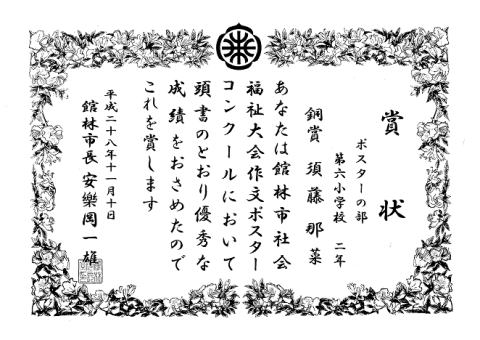 賞状
ポスターの部
第六小学校 二年
銅賞 須藤那菜
あなたは館林市社会
福祉大会作文ポスター
コンクールにおいて
頭書のとおり優秀な
成績をおさめたので
これを賞します
平成二十八年十一月十日
館林市長 安樂岡一雄